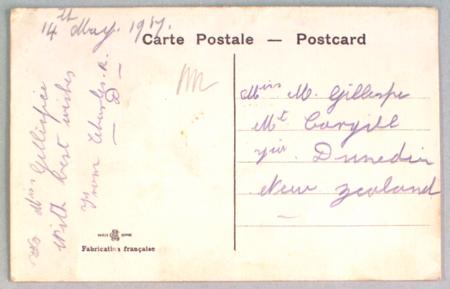 14th May. 1917.
Carte Postale — Postcard
To Miss Gillespie
With best wishes
From Charles. R.
— D —
Miss M. Gillespie
Mt Cargill
via Dunedin
New Zealand
Fabrication française